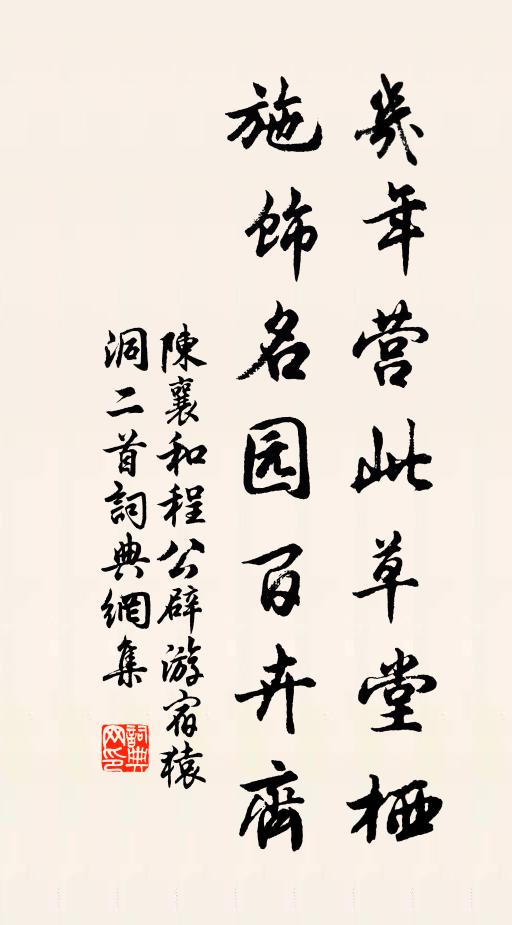 幾年营此草堂栖
施飾名园百卉齊
陳襄和程公辟游宿猿
洞二首詞典網集
詞典網印